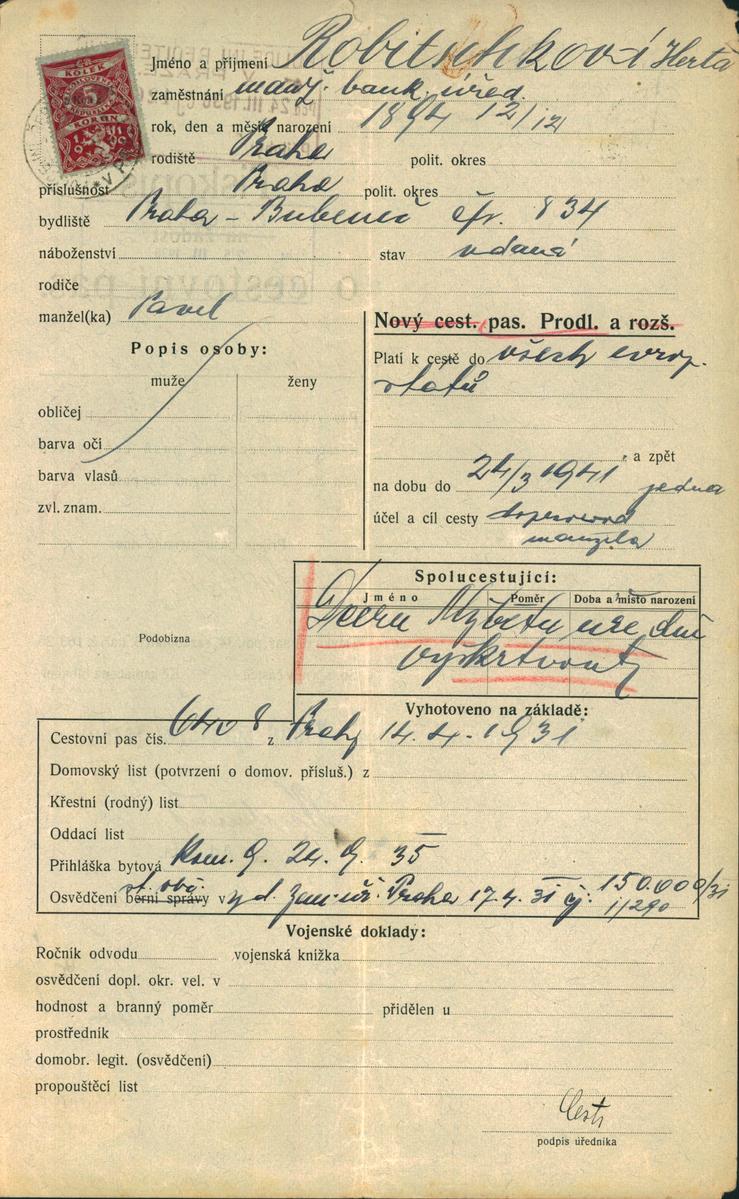 KOLEK
5
KORUN
Jméno a příjmení Robitschková Herta
zaměstnání manž. bank. úřed.
rok, den a měsíc narození 1894 12/12
rodiště Praha polit. okres
příslušnost Praha polit. okres
bydliště Praha - Bubeneč čp. 834
náboženství stav vdaná
rodiče
manžel(ka) Pavel
Nový cest. pas. Prodl. a rozš.
Popis osoby:
muže ženy
obličej
barva očí
barva vlasů
zvl. znam.
Platí k cestě do všech evrop.
států
a zpět
na dobu do 24/3 1941 jedna
účel a cíl cesty doprovod
manžela
Spolucestující:
Jméno Poměr Doba a místo narození
Dceru Alžbětu
vyškrtnout
Podobizna
Vyhotoveno na základě:
Cestovní pas čís. 6408 z Prahy 14.4.1931
Domovský list (potvrzení o domov. přísluš.) z
Křestní (rodný) list
Oddací list
Přihláška bytová kom. 9. 24.9.35
Osvědčení st. obč. berní správy v yd. Zem. úř. Praha 17.4.31 čj. 150.000/31
1/290
Vojenské doklady:
Ročník odvodu vojenská knížka
osvědčení dopl. okr. vel. v
hodnost a branný poměr přidělen u
prostředník
domobr. legit. (osvědčení)
propouštěcí list
podpis úředníka